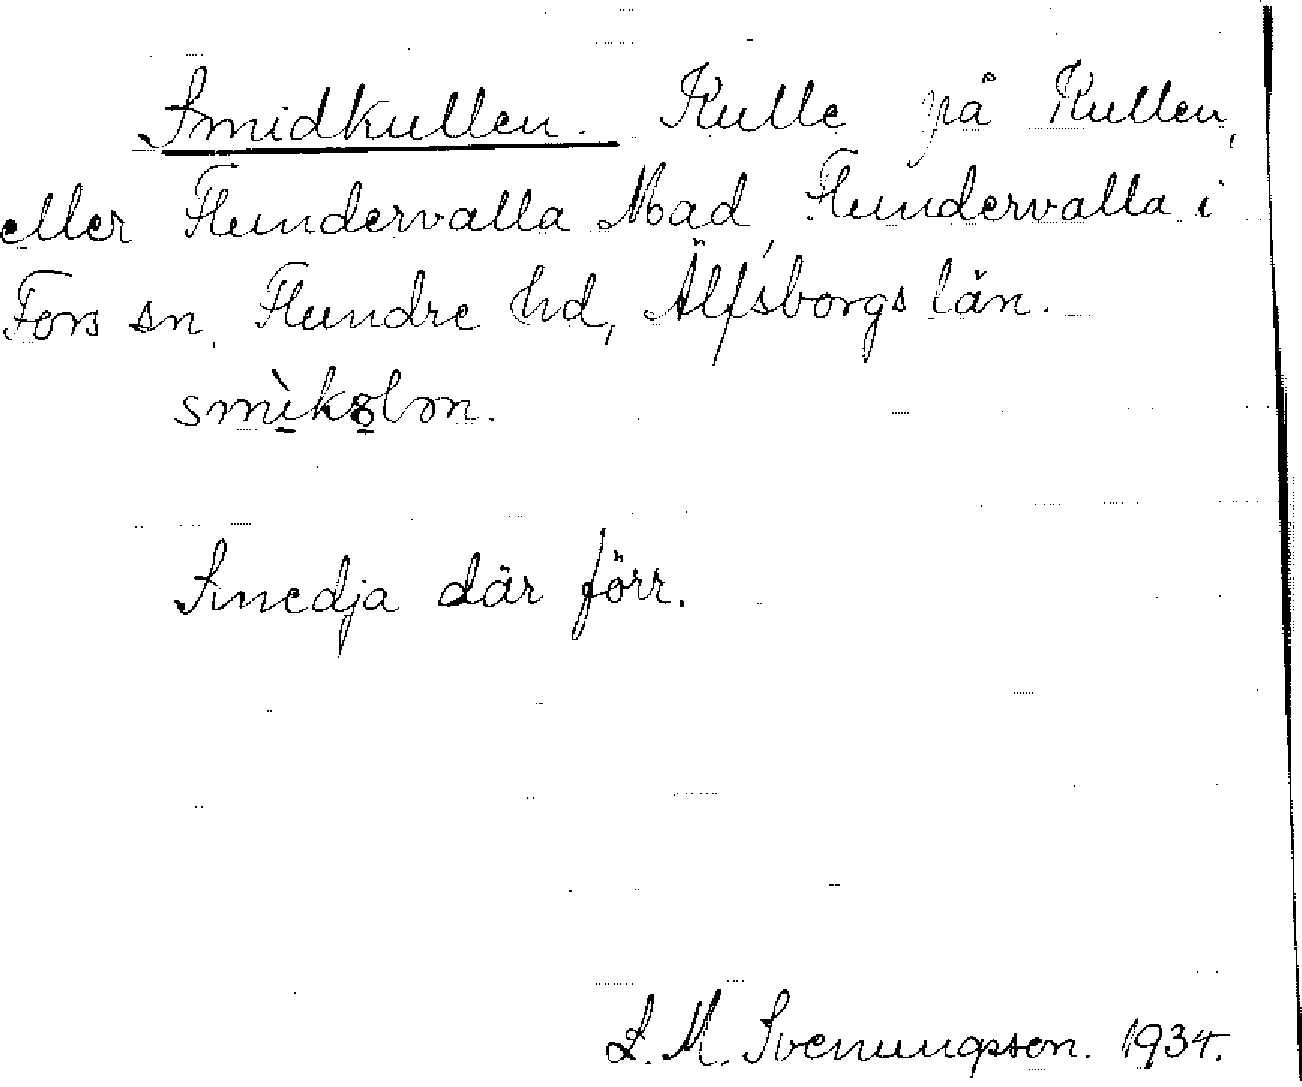 Smidkullen. Kulle på Kullen,
eller Flundervalla Mad, Flundervalla i
Fors sn, Flundre hd, Älfsborgs län.
Smedja där förr.
L. M. Svenungsson. 1934.